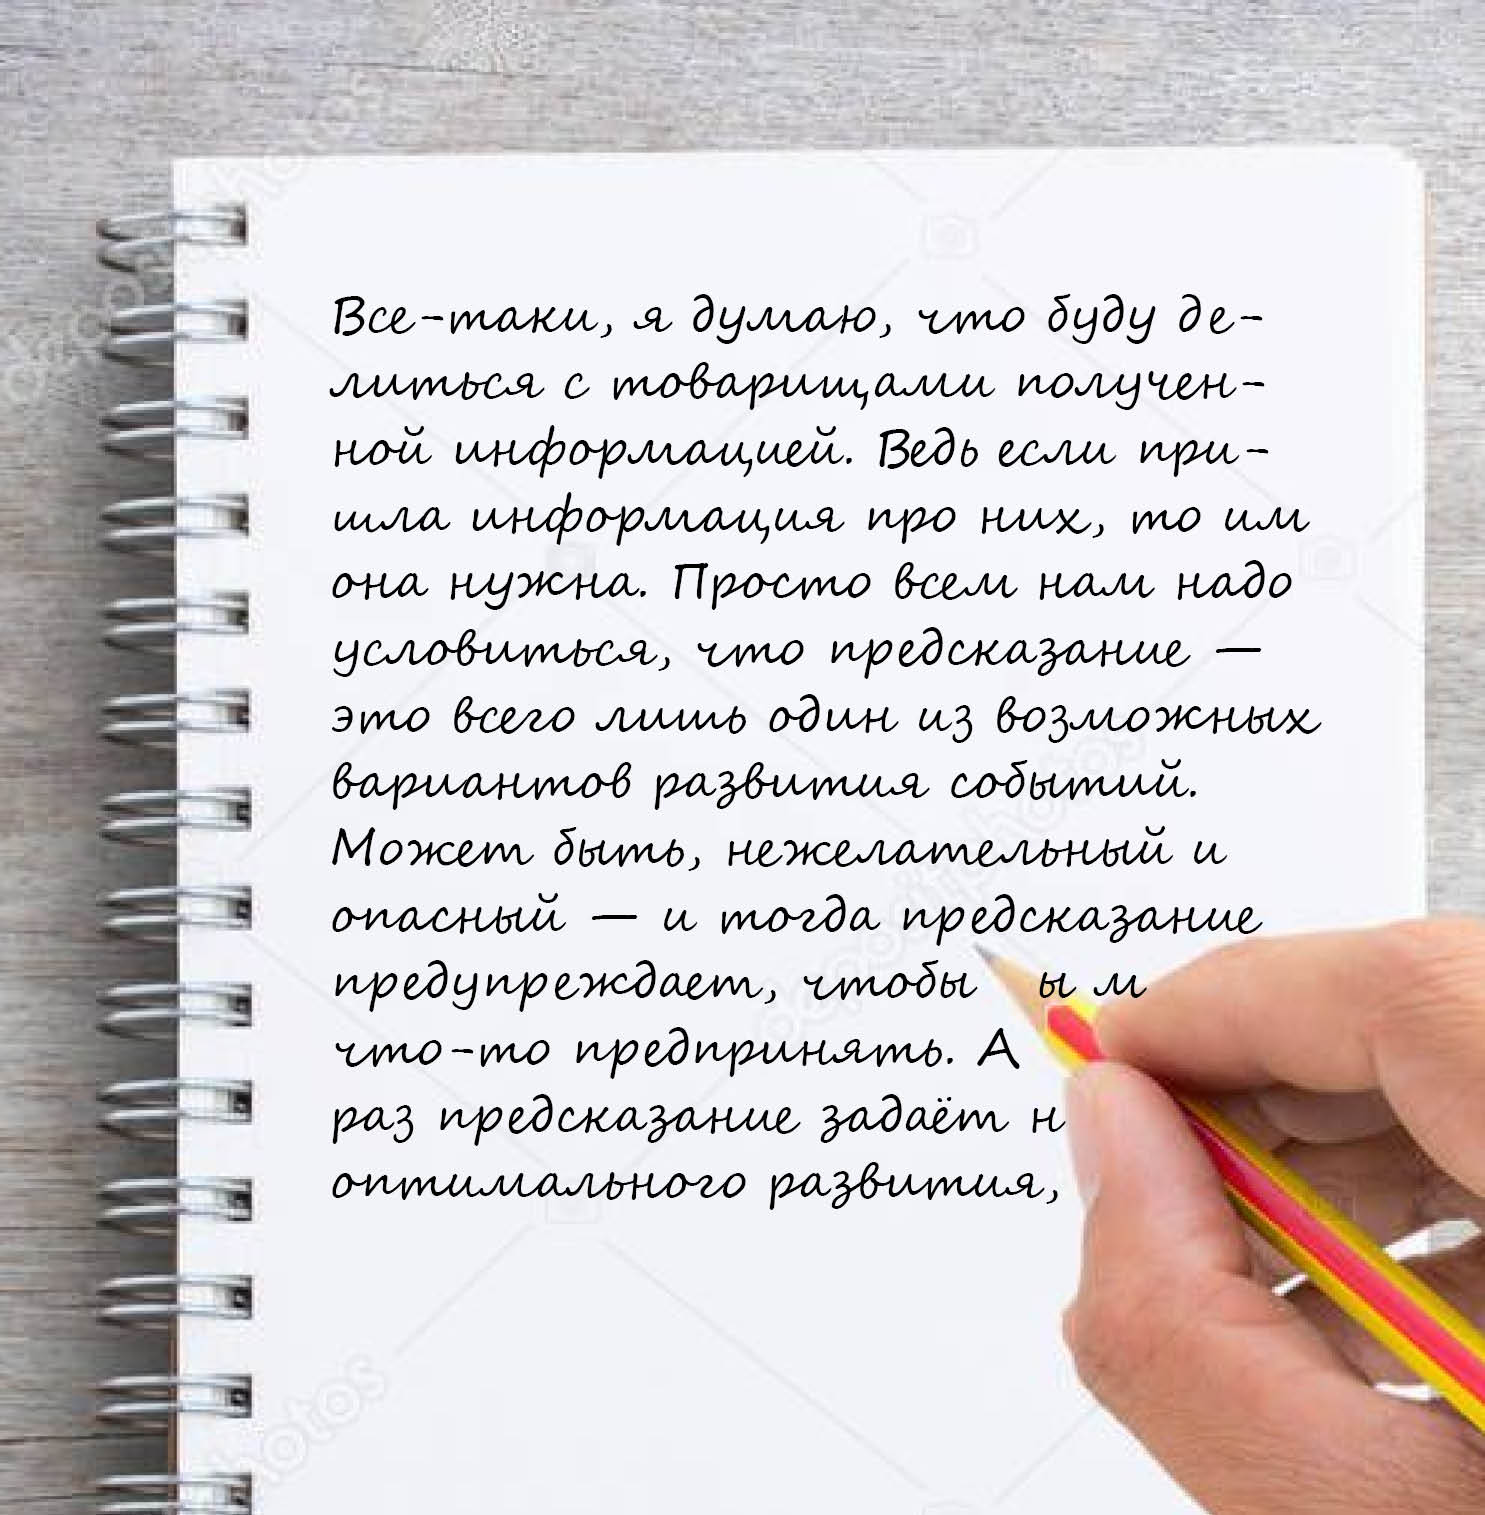 Все-таки, я думаю, что буду де-
литься с товарищами получен-
ной информацией. Ведь если при-
шла информация про них, то им
она нужна. Просто всем нам надо
условиться, что предсказание —
это всего лишь один из возможных
вариантов развития событий.
Может быть, нежелательный и
опасный — и тогда предсказание
предупреждает, чтобы
что-то предпринять. А
раз предсказание задаёт
оптимального развития,